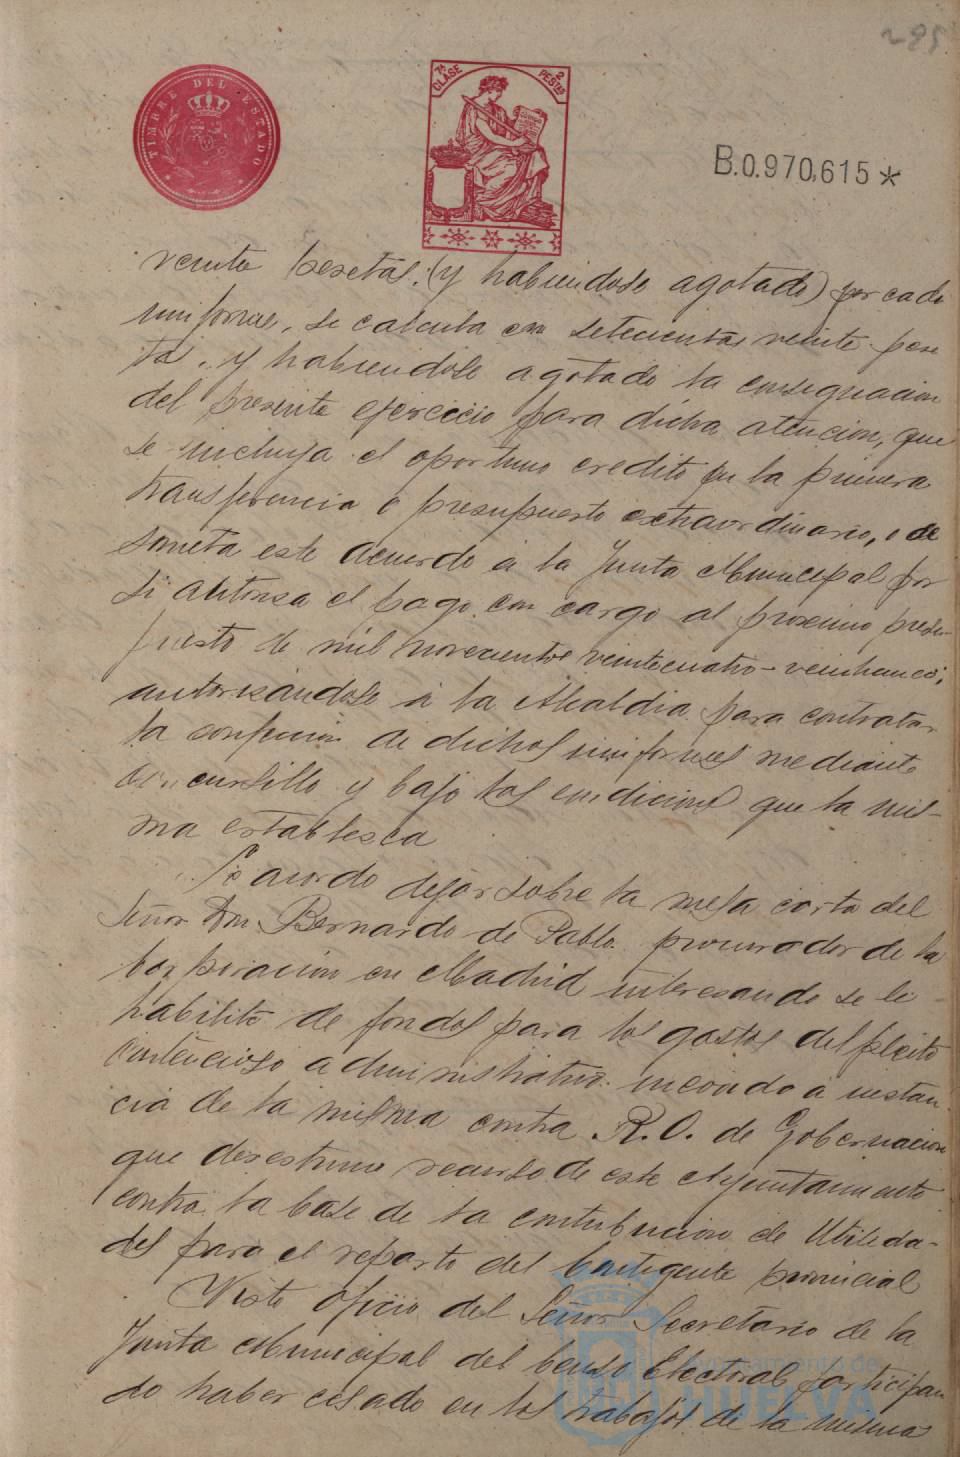 295
TIMBRE DEL ESTADO
7ª CLASE
2 PESTAS
B.0.970,615*
veinte pesetas. (y habiendose agotado) por cada
uniforme, se calcula en setecientas veinte pese
tas, y habiendose agotado la consignacion
del presente ejercicio para dicha atencion, que
se incluya el oportuno credito en la primera
transferencia o presupuesto extraordinario, o se
someta este acuerdo a la Junta Municipal por
si autoriza el pago con cargo al proximo presu-
puesto de mil novecientos veinticuatro-veinticinco;
autorizandose a la Alcaldia para contratar
la confeccion de dichos uniformes mediante
concursillo y bajo las condiciones que la mis-
ma establesca
Se acordo dejar sobre la mesa carta del
Señor Don Bernardo de Pablo procurador de la
Corporacion en Madrid interesando se le
habilite de fondos para los gastos del pleito
contencioso administrativo incoado a instan
cia de la misma contra R.O. de Gobernacion
que desestimo recurso de este Ayuntamiento
contra la base de la contribucion de Utilida-
des para el reparto del Contigente provincial
Visto oficio del Señor Secretario de la
Junta Municipal del Censo Electoral participan
do haber cesado en los trabajos de la misma
Ayuntamiento de
HUELVA